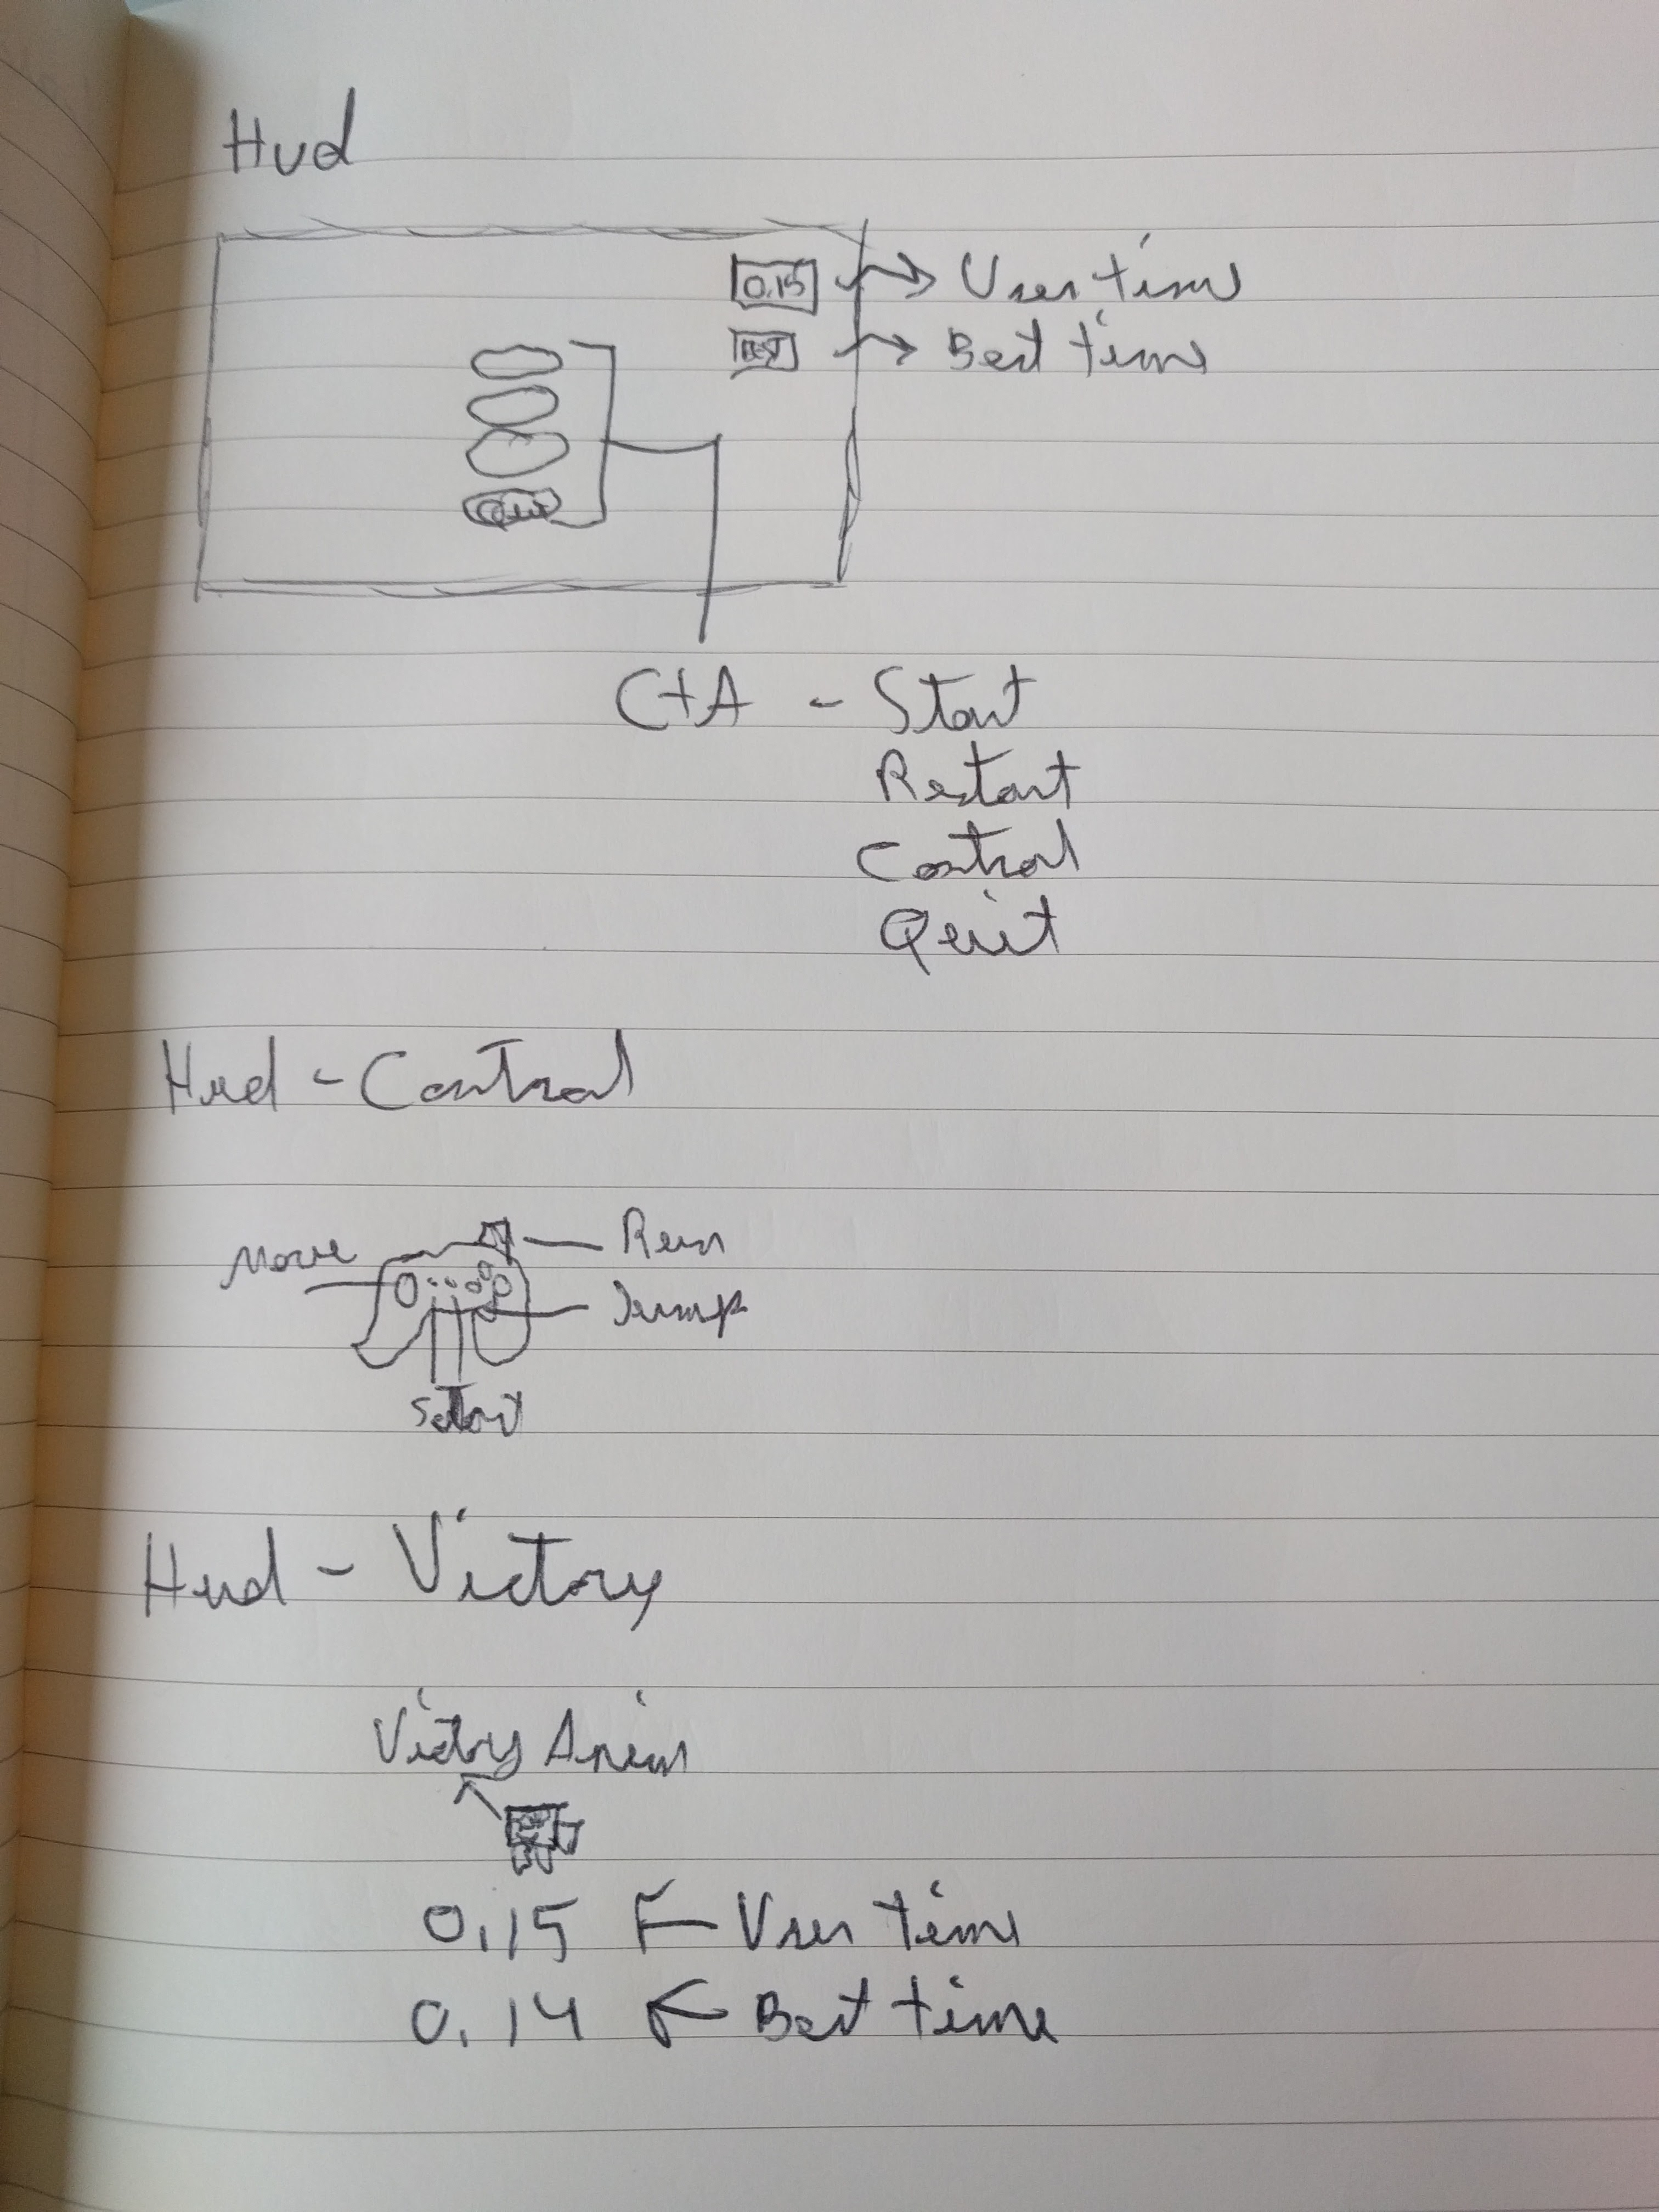 Hud
0.15 User time
Best time
CtA - Start
Restart
Control
Quit
Hud - Control
Move Run
Jump
Hud - Victory
Victory Anim
0.15 User time
0.14 Best time